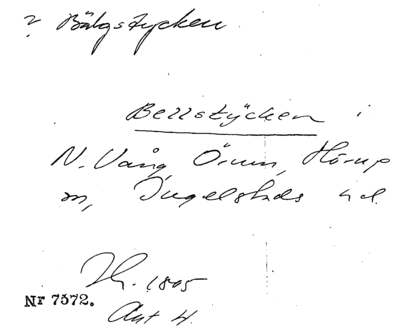 ? Bälgstycken
Bellstÿcken i
N. Vång, Örum, Hörup
m, Ingelstads hd.
1805
Nr 7572.
Akt 4.